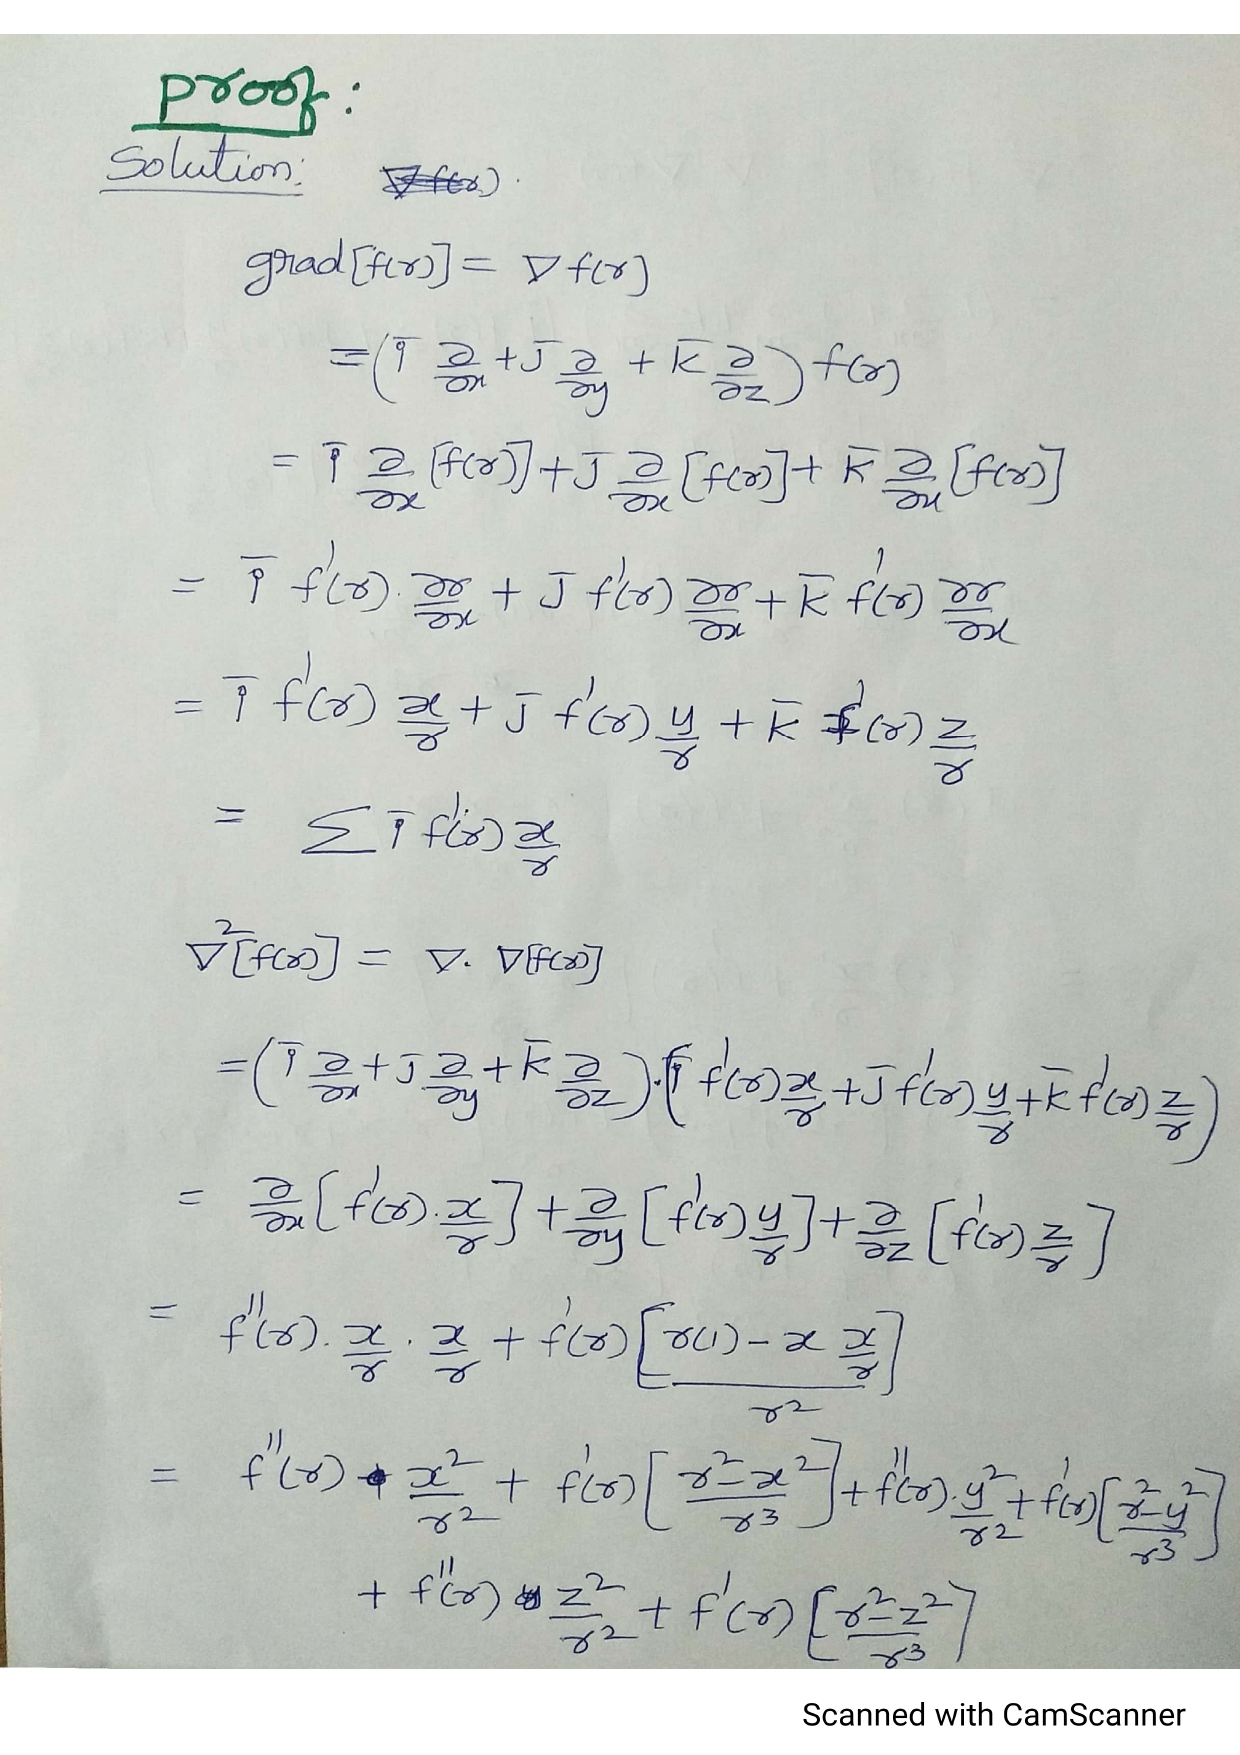 proof:
Solution:
grad[f(r)] = ∇ f(r)
= (ī ∂/∂x + J̄ ∂/∂y + K̄ ∂/∂z) f(r)
= ī ∂/∂x [f(r)] + J̄ ∂/∂x [f(r)] + K̄ ∂/∂x [f(r)]
= ī f'(r) · ∂r/∂x + J̄ f'(r) ∂r/∂x + K̄ f'(r) ∂r/∂x
= ī f'(r) x/r + J̄ f'(r) y/r + K̄ f'(r) z/r
= Σ ī f'(r) x/r
∇²[f(r)] = ∇. ∇[f(r)]
= (ī ∂/∂x + J̄ ∂/∂y + K̄ ∂/∂z) · (ī f'(r) x/r + J̄ f'(r) y/r + K̄ f'(r) z/r)
= ∂/∂x [f'(r) · x/r] + ∂/∂y [f'(r) y/r] + ∂/∂z [f'(r) z/r]
= f''(r) · x/r · x/r + f'(r) [r(1) - x x/r]/r²
= f''(r) · x²/r² + f'(r) [r²-x²/r³] + f''(r) · y²/r² + f'(r) [r²-y²/r³]
+ f''(r) z²/r² + f'(r) [r²-z²/r³]
Scanned with CamScanner